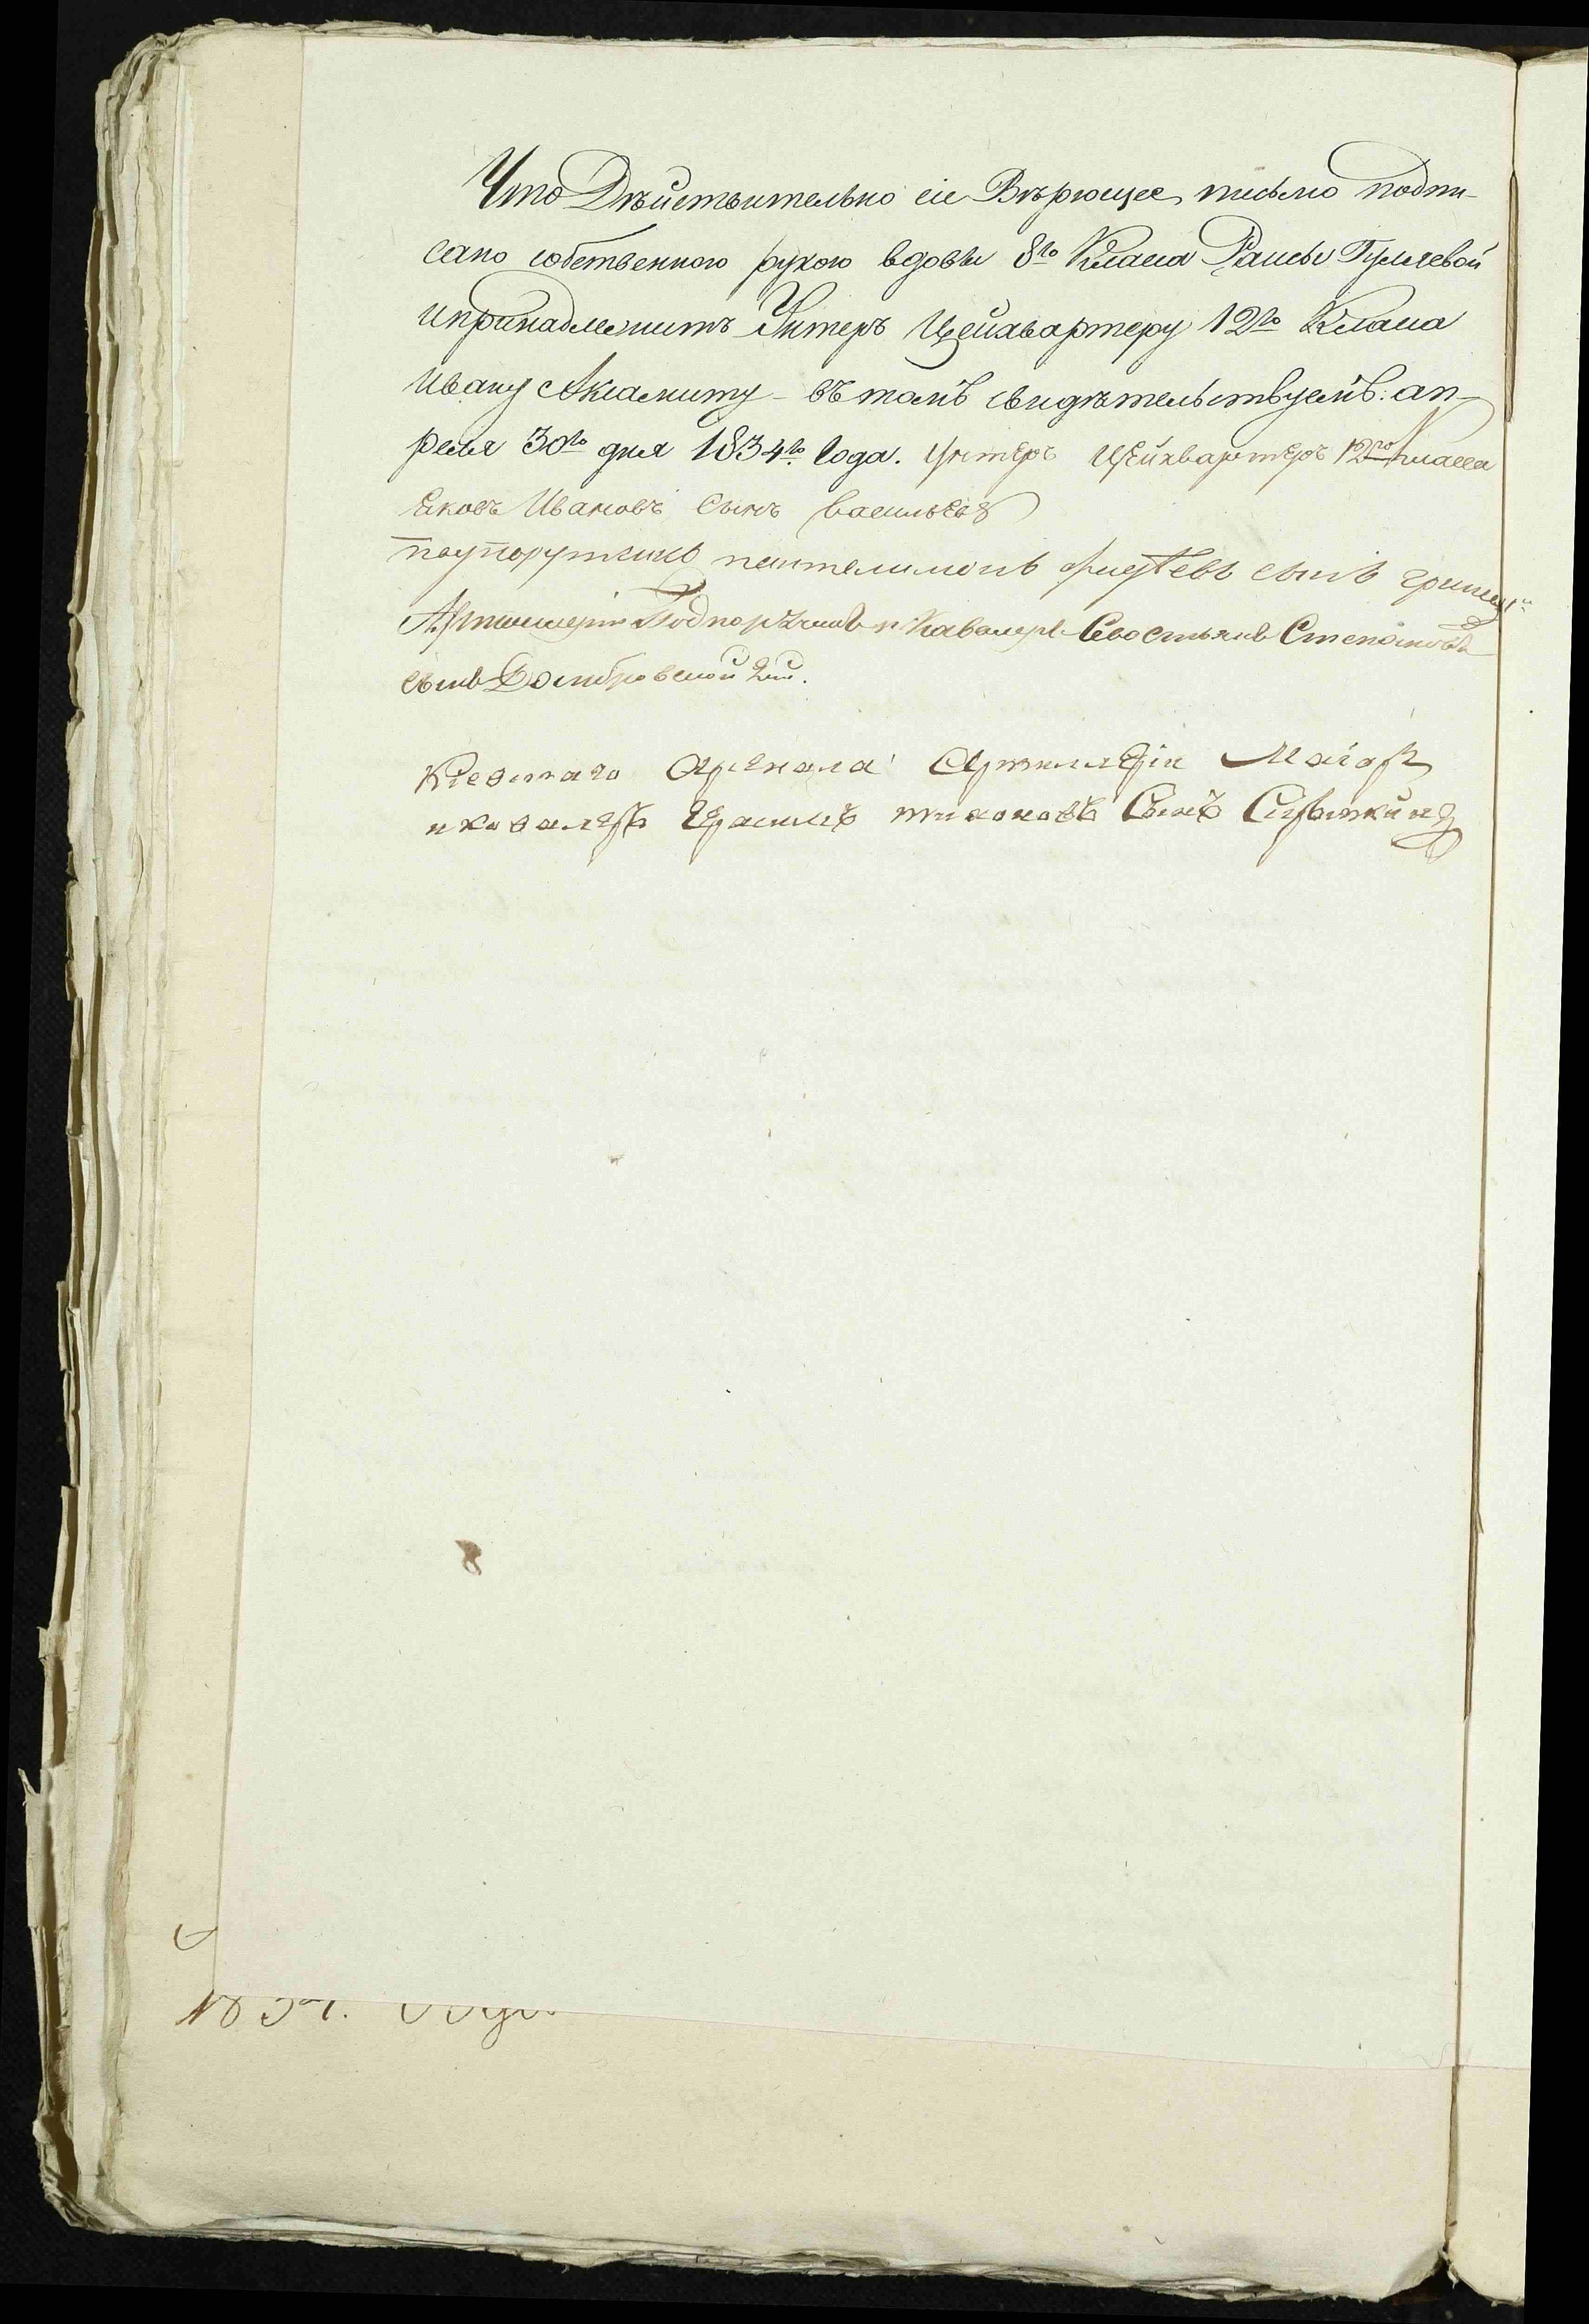 Что Дѣйствительно сіе Вѣрющее письмо подпи-
сано собственною рукою вдовы 8го Класа Раисы Гуляевой
ипринадлежитъ Унтеръ Цейхвартеру 12го Класа
Ивану Аксамиту – въ томъ свидѣтельствуемъ: ап-
реля 30го дня 1834го Года. Унтеръ Цейхвартеръ 12го Класса
Яковъ Ивановъ Сынъ Васильевъ
Пантелимонъ сынъ
Артиллеріи Подпоручикъ и Кавалеръ Севостьянъ Степановъ
сынъ Домбровской 2й.
Кіевскаго Арсенала Артиллеріи Маіоръ
икавалеръ Герасимъ тихоновъ Сынъ
1834. Года